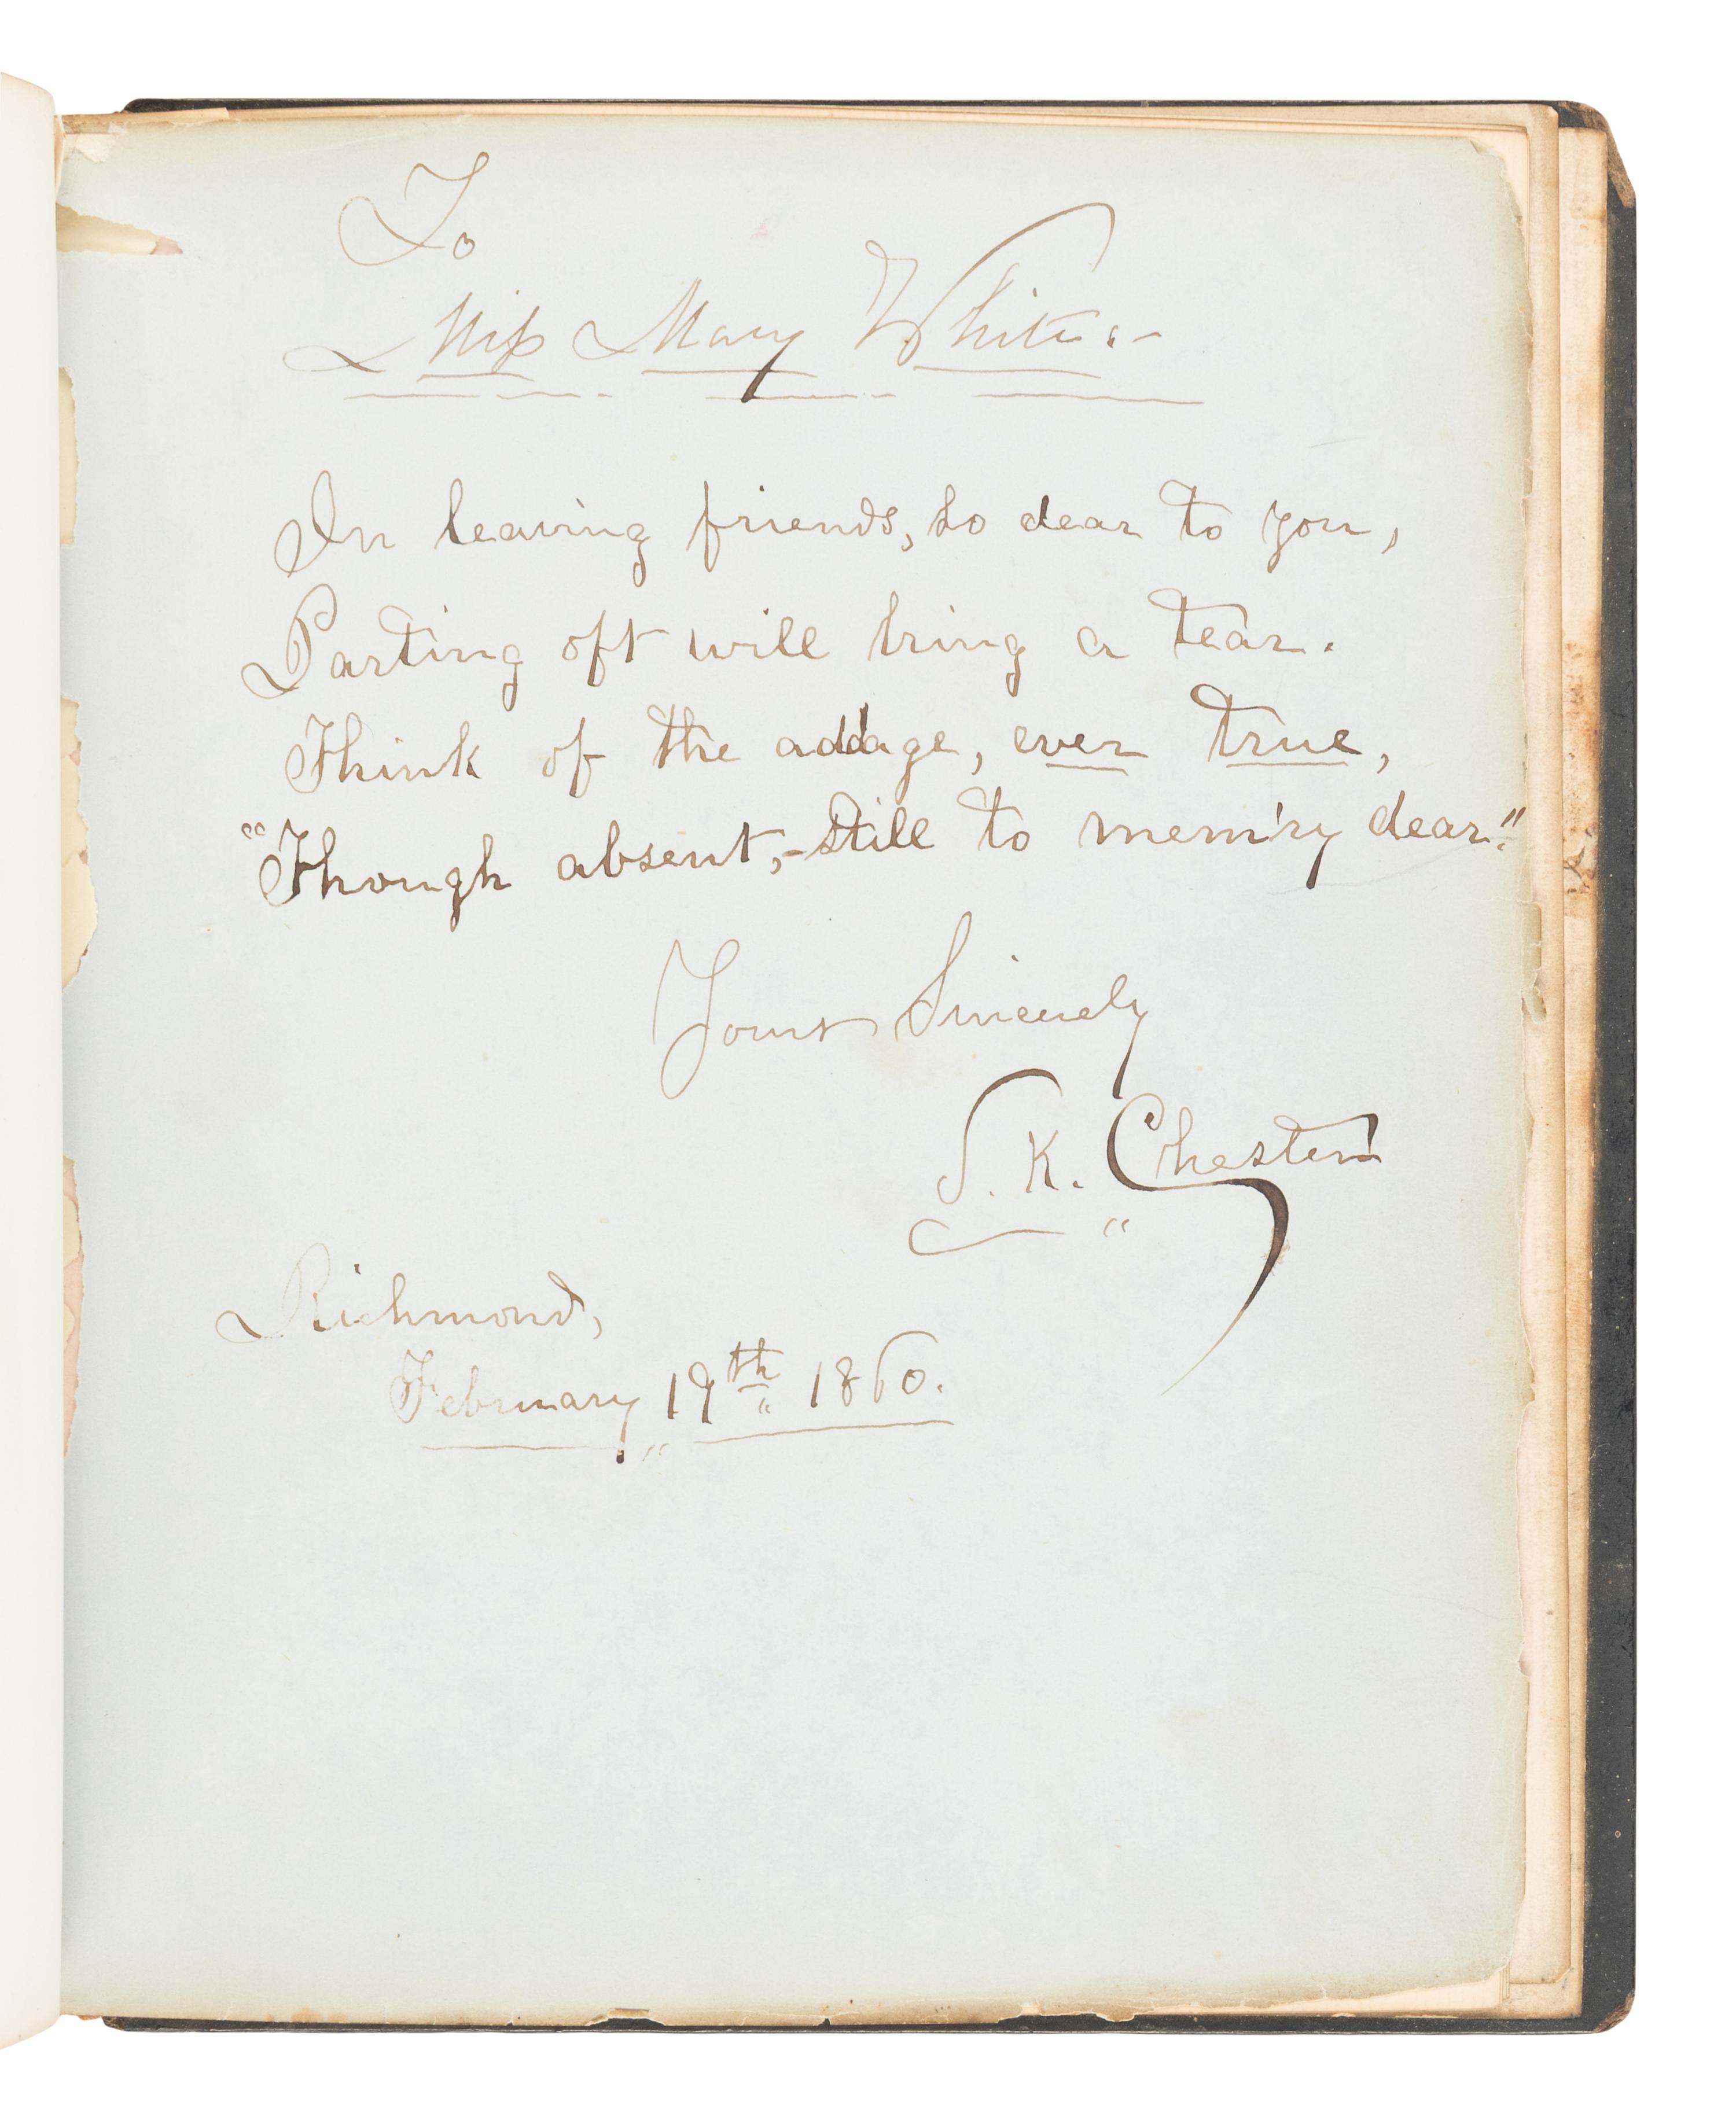 To
Miss Mary White:-
In leaving friends, so dear to you,
Parting oft will bring a tear.
Think of the addage, ever true,
"Though absent,-still to mem'ry dear."
Yours Sincerely
S. K. Chester
Richmond,
February 19th 1860.